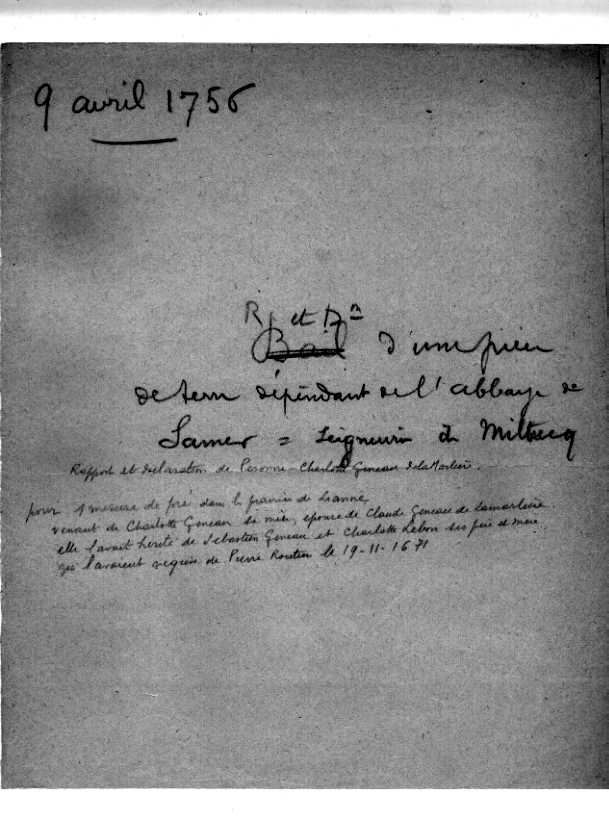 9 avril 1756
R et Dn
Bail d'une pièce
de terre dépendant de l'abbaye de
Samer = Seigneurie de Milbecq
Rapport et déclaration de Peronne-Charlotte Geneau de la Marliere.
pour 1 mesure de pré dans la prairie de Lianne
venant de Charlotte Geneau sa mère, épouse de Claude Geneau de Lamarliere
elle l'avait hérité de Sebastien Geneau et Charlotte Lebon ses père et mère
qui l'avaient acquise de Pierre Routier le 19-11-1671